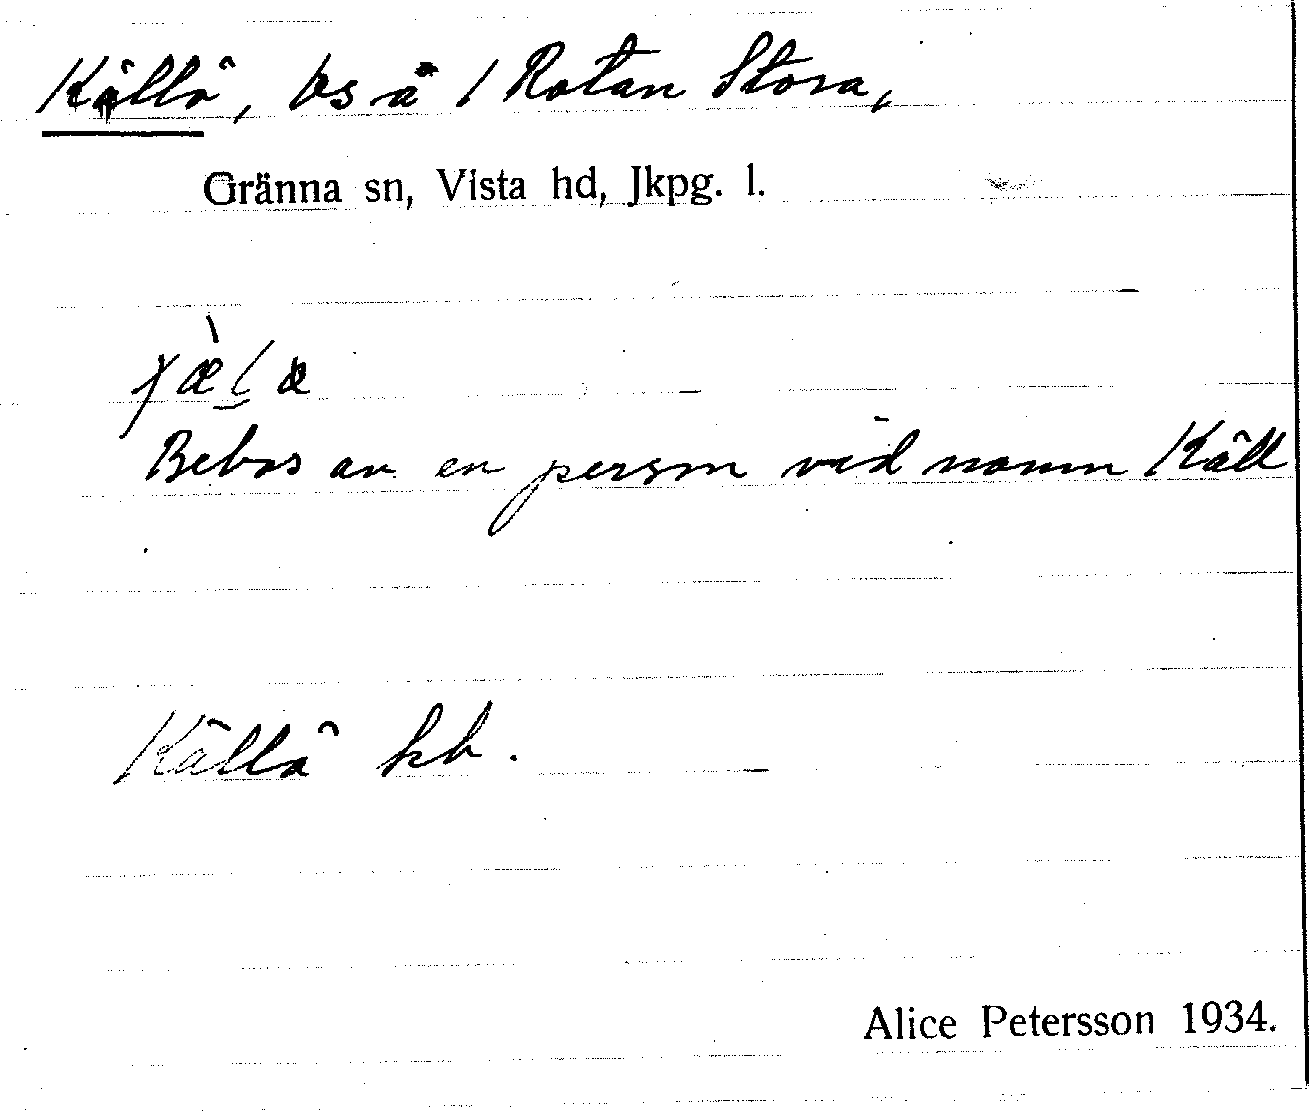 Källä, bs å 1 Rotan Stora,
Gränna sn, Vista hd, Jkpg. l.
Bebos av en person vid namn Käll
Källä kb.
Alice Petersson 1934.